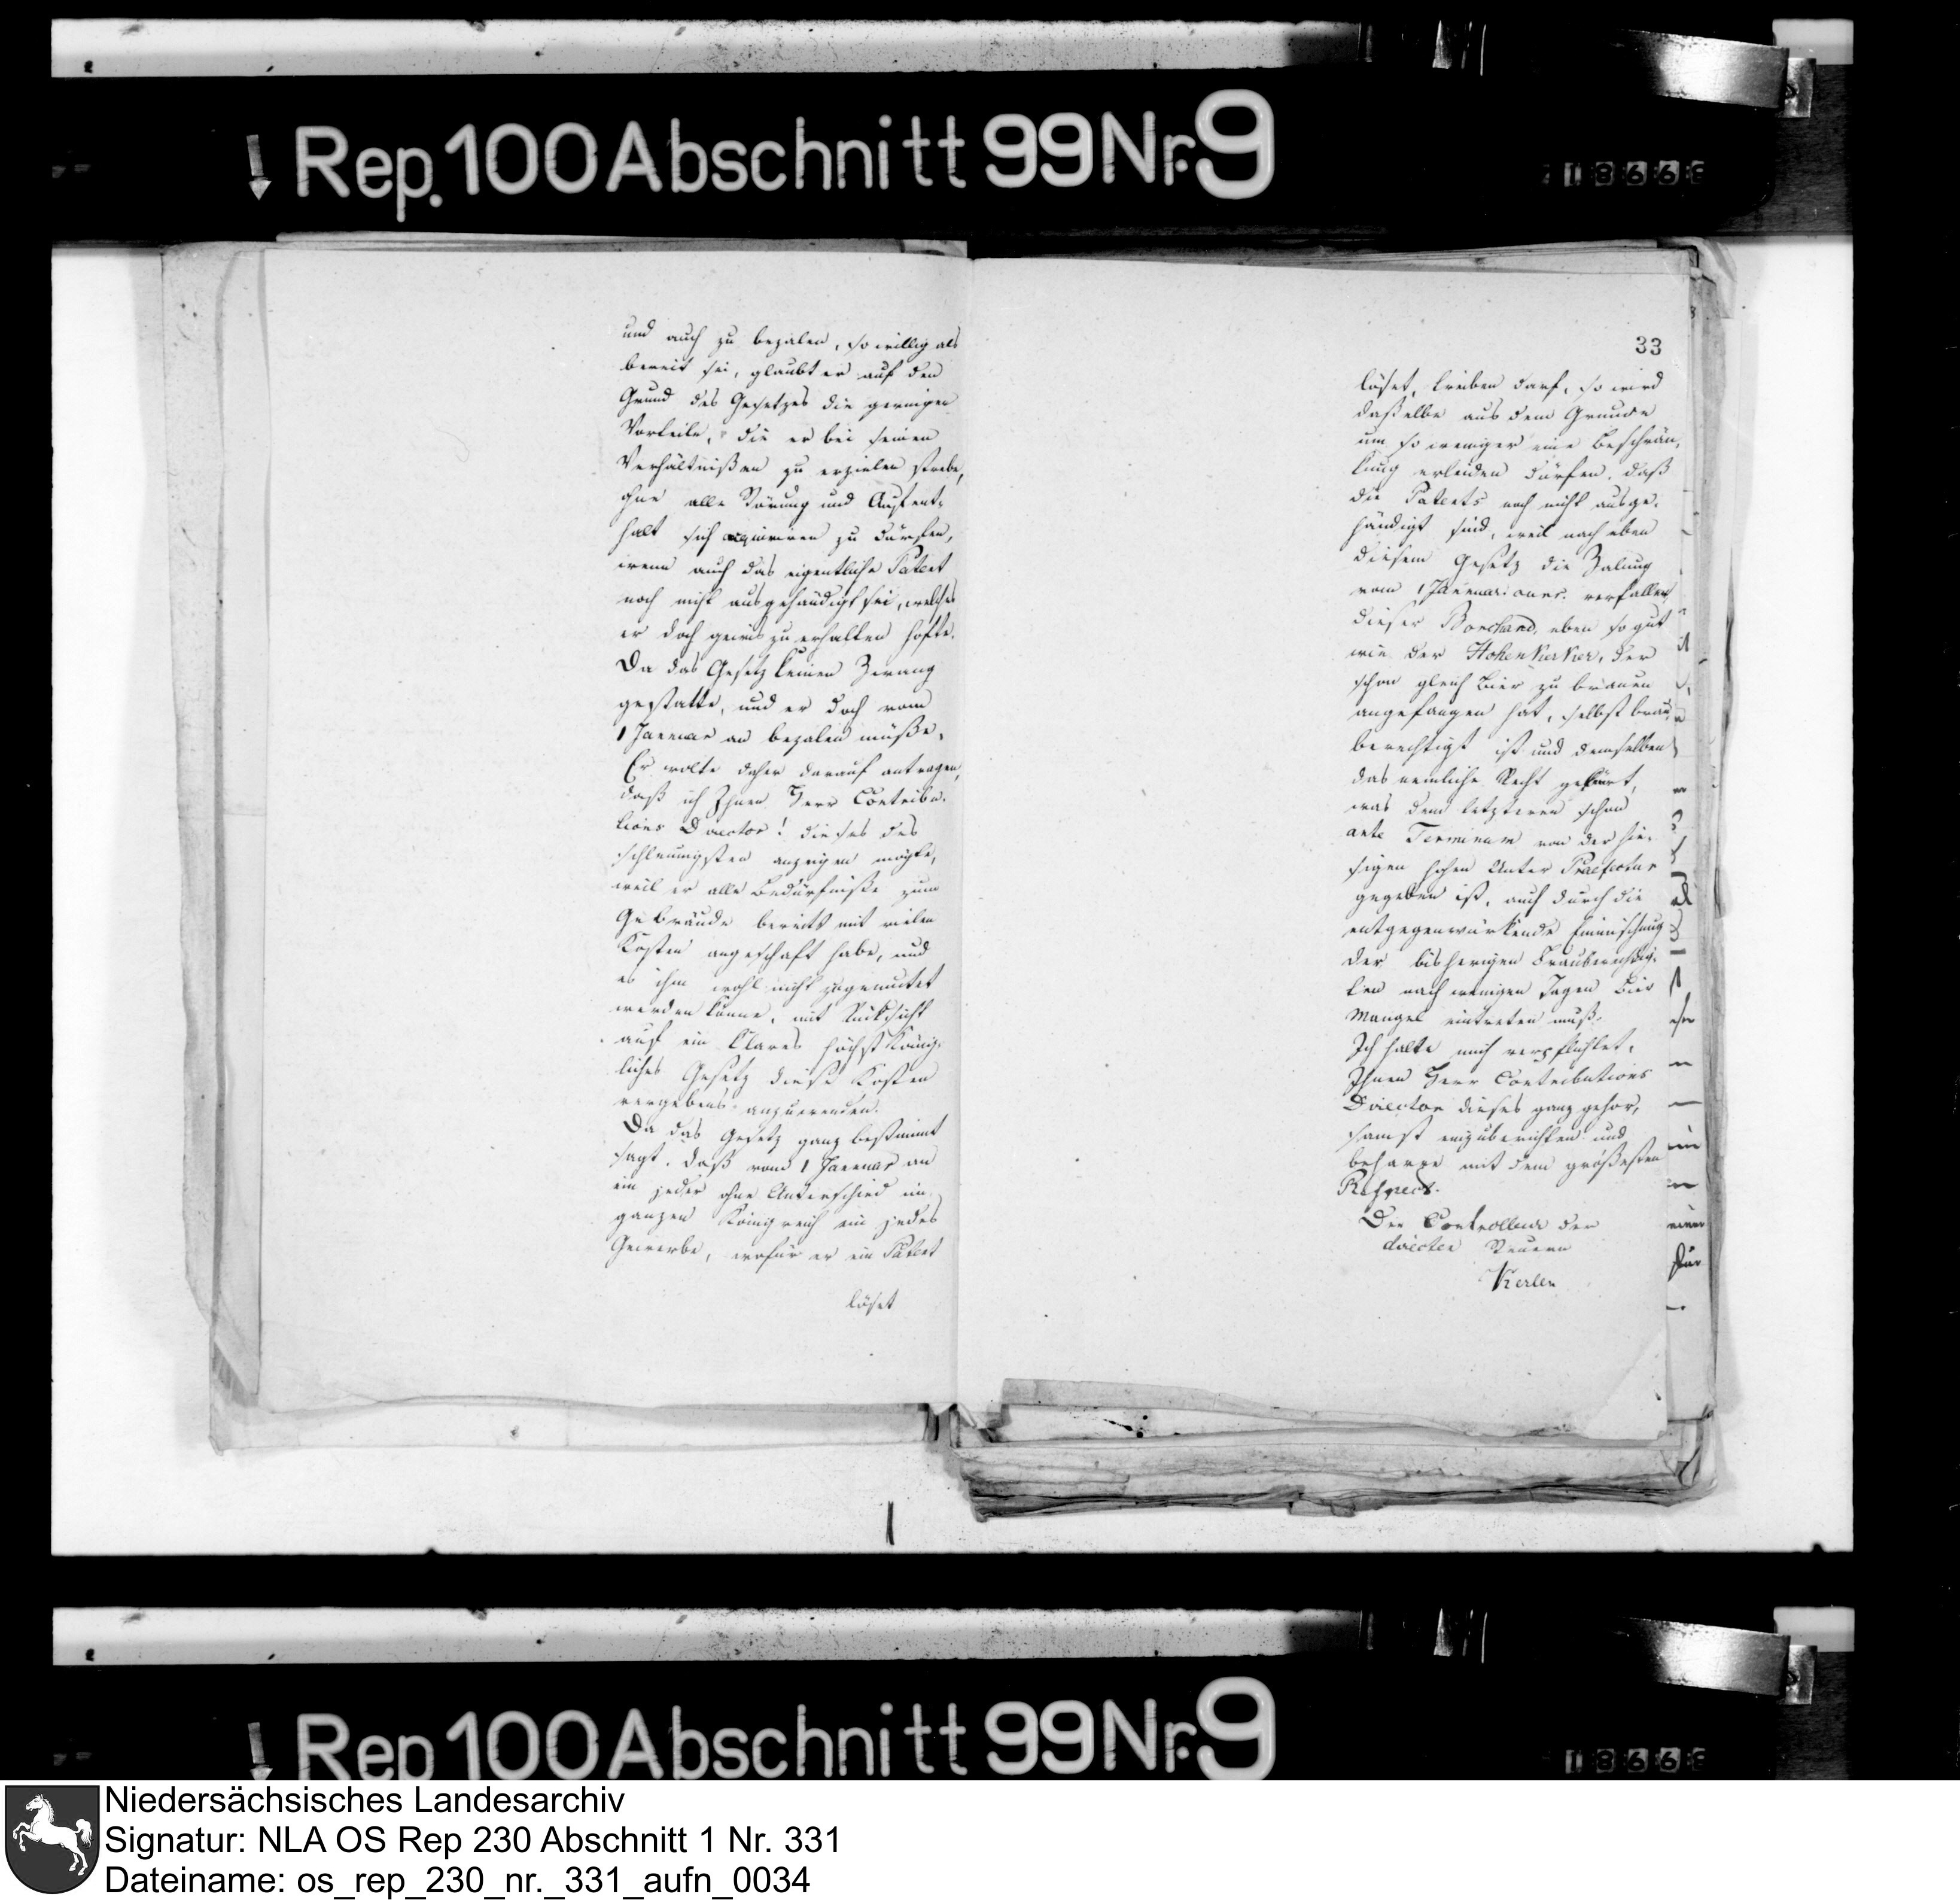 Rep. 100 Abschnitt 99 Nr. 9
18668
und auch zu bezalen, so willig als
bereit sei, glaubt er auf den
Grund des Gesetzes die geringen
Vorteile, die er bei seinen
Verhältnißen zu erzielen strebe,
ohne alle Störung und Aufent-
halt sich acquiriren zu dürfen,
wenn auch das eigentliche Patent
noch nicht ausgehändigt sei, welches
er doch gewis zu erhalten hofte.
Da das Gesetz keinen Zwang
gestatte, und er doch vom
1 Januar an bezalen müße.
Er wolte daher darauf antragen,
daß ich Ihnen Herr Contribu-
tions Director! dieses des
schleunigsten anzeigen mögte,
weil er alle Bedürfniße zum
Gebräude bereits mit vielen
Kosten angeschaft habe, und
es ihm wohl nicht zugemutet
werden könne, mit Rücksicht
auf ein klares höchst König-
liches Gesetz diese Kosten
vergebens anzuwenden.
Da das Gesetz ganz bestimmt
sagt, daß vom 1 Januar an
ein jeder ohne Unterschied im
ganzen Königreich ein jedes
Gewerbe, wofür er ein Patent
löset
33
löset, treiben darf, so wird
daßelbe aus dem Grunde
um so weniger eine Beschrän-
kung erleiden dürfen, daß
die Patents noch nicht ausge-
händigt sind, weil nach eben
diesem Gesetz die Zalung
vom 1 Januar: verfallen
dieser Borchard, eben so gut
wie der Hohenkerker, der
schon gleich Bier zu brauen
angefangen hat, selbst brau
berechtigt ist und demselben
das nemliche Recht gebürt,
was dem letzteren schon
ante Terminum von der hie-
sigen hohen Unter Praefectur
gegeben ist, auch durch die
entgegenwürkende
der bisherigen Brauberechtig-
ten nach wenigen Tagen Bier
Mangel eintreten muß.
Ich halte mich verpflichtet,
Ihnen Herr Contributions
Director dieses ganz gehor-
samst einzuberichten und
beharre mit dem größesten
Respect.
Der Controlleur der
directen Steuern
Kerlen
Rep 100 Abschnitt 99 Nr. 9
18668
Niedersächsisches Landesarchiv
Signatur: NLA OS Rep 230 Abschnitt 1 Nr. 331
Dateiname: os_rep_230_nr._331_aufn_0034